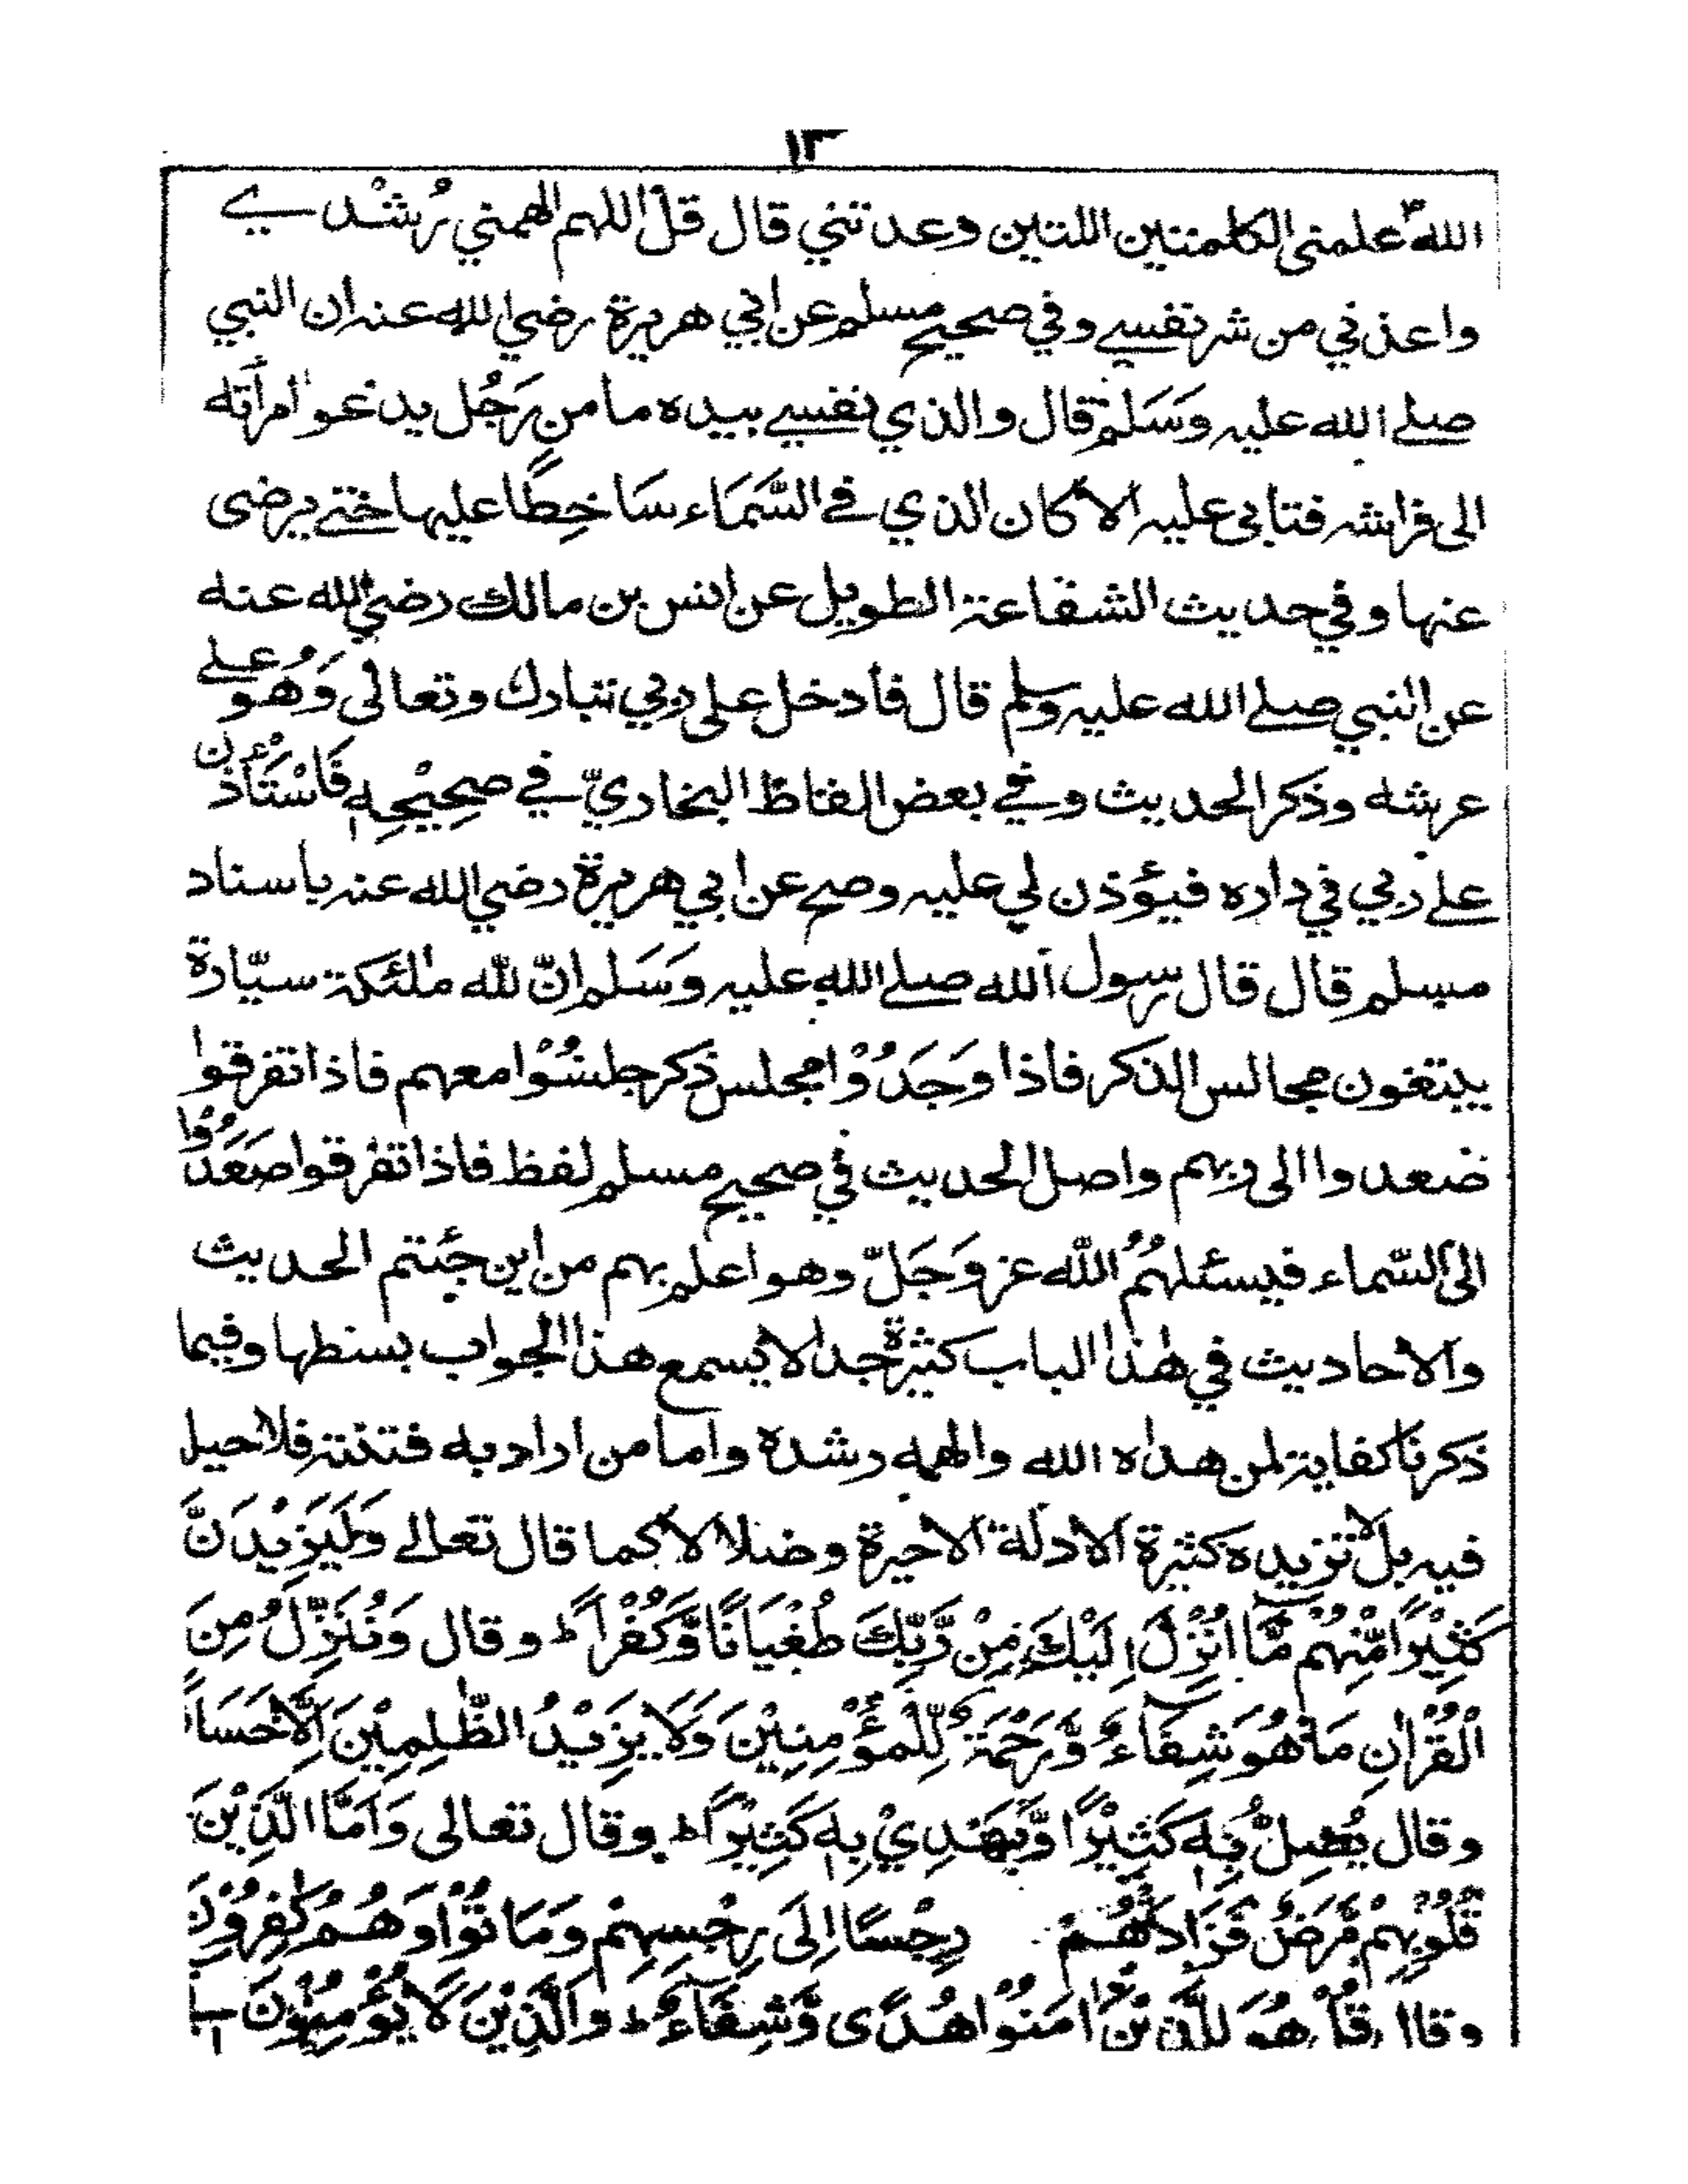 ١٣
الله علمني الكلمتين اللتين وعدتني قال قل اللهم الهمني رُشْدي
واعذني من شر نفسي وفي صحيح مسلم عن ابي هريرة رضي الله عنه ان النبي
صلى الله عليه وَسَلم قال والذي نفسي بيده ما من رَجُل يدعو امرأته
الى فراشه فتابى عليه الا كان الذي في السَّمَاء سَاخِطًا عليها حتى يرضى
عنها وفي حديث الشفاعة الطويل عن انس بن مالك رضي الله عنه
عن النبي صلى الله عليه وسلم قال فادخل على ربي تبارك وتعالى وَهُو على
عرشه وذكر الحديث وفي بعض الفاظ البخاريّ في صحِيْحِهٖ فَاسْتَأذن
على ربي في داره فيؤذن لي عليه وصح عن ابي هريرة رضي الله عنه باسناد
مسلم قال قال رسول الله صلى الله عليه وَسَلم انّ لله ملٰئكة سيّارة
يبتغون مجالس الذكر فاذا وَجَدُوْا مجلس ذكر جلسُوْا معهم فاذا تفرقوا
ضعدوا الى ربهم واصل الحديث في صحيح مسلم لفظ فاذا تفرقوا صَعَدُوْا
الى السّماء فيسئلهُمُ الله عز وَجَلّ وهو اعلم بهم من اين جئتم الحديث
والاحاديث في هٰذا الباب كثيرة جدا لا يسمع هذا الجواب بسطها وفيما
ذكرنا كفاية لمن هداه الله والهمه رشده واما من اراد به فتنته فلا حيل
فيه بل لا تزيده كثرة الادلة الا حيرة وضلالا كما قال تعالى وَلَيَزِيْدَنَّ
كَثِيْرًا مِّنْهُمْ مَّا اُنْزِلَ اِلَيْكَ مِنْ رَّبِّكَ طُغْيَانًا وَّكُفْرًا ط وقال وَنُنَزِّلُ مِنَ
الْقُرْاٰنِ مَا هُوَ شِفَآءٌ وَّرَحْمَةٌ لِّلْمُؤْمِنِيْنَ وَلَا يَزِيْدُ الظّٰلِمِيْنَ اِلَّا خَسَاً
وقال يُضِلُّ بِهٖ كَثِيْرًا وَّيَهْدِيْ بِهٖ كَثِيْرًا ط وقال تعالى وَاَمَّا الَّذِيْنَ
قُلُوْبِهِمْ مَّرَضٌ فَزَادَتْهُمْ رِجْسًا اِلَى رِجْسِهِمْ وَمَا تُوْا وَهُمْ كٰفِرُوْنَ
وقال قُلْ هُوَ لِلَّذِيْنَ اٰمَنُوْا هُدًى وَّشِفَآءٌ ط وَالَّذِيْنَ لَا يُؤْمِنُوْنَ